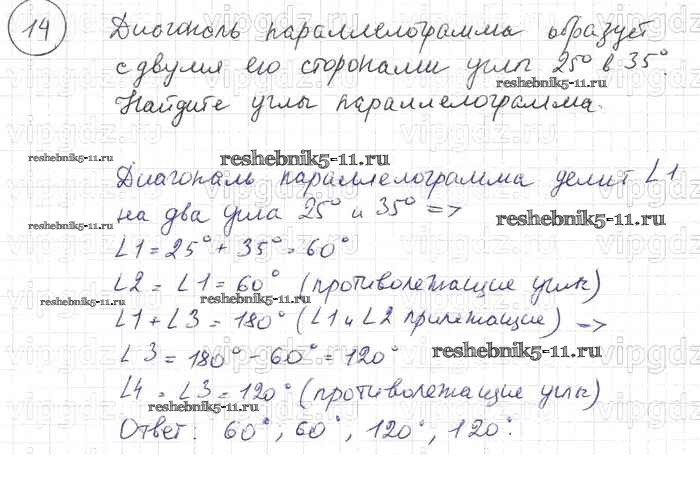 14 Диагональ параллелограмма образует
с двумя его сторонами углы 25° и 35°.
reshebnik5-11.ru
Найдите углы параллелограмма.
reshebnik5-11.ru
reshebnik5-11.ru
Диагональ параллелограмма делит ∠1
на два угла 25° и 35° =>
reshebnik5-11.ru
reshebnik5-11.ru
∠1 = 25° + 35° = 60°
∠2 = ∠1 = 60° (противолежащие углы)
reshebnik5-11.ru
reshebnik5-11.ru
∠1 + ∠3 = 180° (∠1 и ∠2 прилежащие) =>
∠3 = 180° - 60° = 120°
reshebnik5-11.ru
∠4 = ∠3 = 120° (противолежащие углы)
reshebnik5-11.ru
Ответ: 60°; 60°, 120°, 120°.